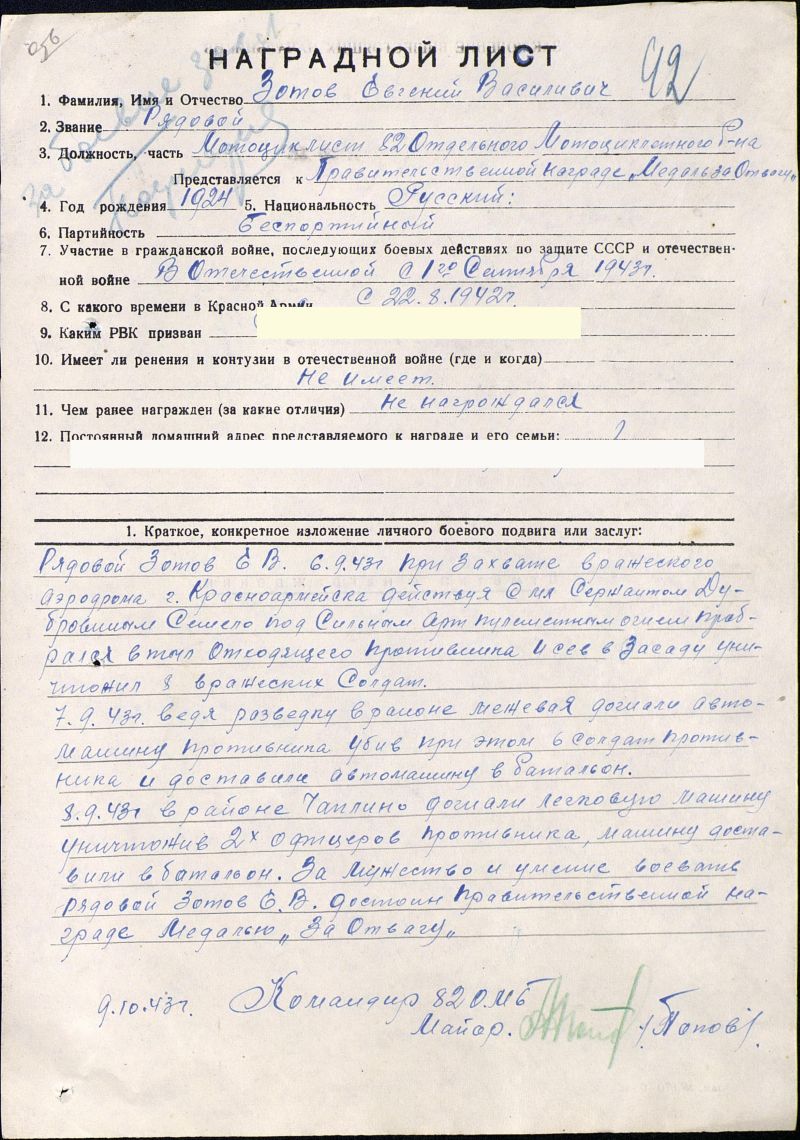 НАГРАДНОЙ ЛИСТ
42
1. Фамилия, Имя и Отчество Зотов Евгений Василивич
2. Звание Рядовой
3. Должность, часть Мотоциклист 82 Отдельного Мотоциклетного б-на
Представляется к Правительственной награде „Медаль за Отвагу"
4. Год рождения 1924 5. Национальность Русский:
6. Партийность беспортийный
7. Участие в гражданской войне, последующих боевых действиях по защите СССР и отечествен-
ной войне В Отечественной с 1го Сентября 1943г.
8. С какого времени в Красной Армии с 22.8.1942г.
9. Каким РВК призван
10. Имеет ли ренения и контузии в отечественной войне (где и когда)
Не имеет.
11. Чем ранее награжден (за какие отличия) не нагрождался
12. Постоянный домашний адрес представляемого к награде и его семьи:
1. Краткое, конкретное изложение личного боевого подвига или заслуг:
Рядовой Зотов Е В. 6.9.43г при захвате вражеского
аэродрома г. Красноармейска действуя с мл Сержантом Ду-
бровиным Семело под Сильным Арт пулеметным огнем проб-
рался в тыл Отходящего противника и сев в Засаду уни-
чтожил 8 вражеских Солдат.
7.9.43г. ведя разведку в районе межевая догнали авто-
машину противника убив при этом 6 солдат против-
ника и доставили автомашину в батальон.
8.9.43г в районе Чаплино догнали легковую машину
уничтожив 2х офицеров противника, машину доста-
вили в батальон. За мужество и умение воевать
рядовой Зотов Е.В. достоин правительственной на-
граде Медалью „За Отвагу"
9.10.43г. Командир 82 ОМБ
Майор. /Попов/.